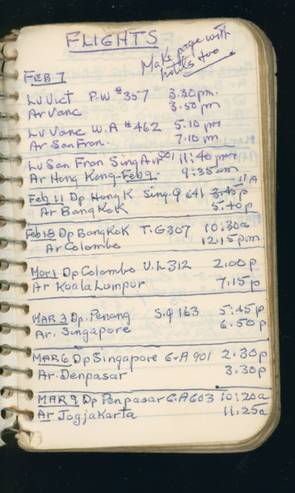 FLIGHTS
Make page with
hotels too
FEB 7
Lv Vict P.W #357 3.30pm.
Ar Vanc 3.50 pm
Lv Vanc W.A #462 5.10 pm
Ar San Fran. 7.10 pm
Lv San Fran Sing Air 11:40 pm
Ar Hong Kong-Feb 9. 9:35am
Feb 11 Dp Hong K Sing. Q 641 3.45p
Ar Bangkok 5.40p
Feb 18 Dp Bangkok T.G307 10:30a
Ar Colombo 12.15 p.m
Mar 1 Dp Colombo U.L 312 2.00p
Ar Kuala Lumpur 7.15p
MAR 3 Dp. Penang S.Q 163 5:45p
Ar. Singapore 6.50p
MAR 6 Dp Singapore G.A 901 2.30p
Ar. Denpasar 3.30p
MAR 9 Dp Denpasar G.A 603 10:20a
Ar Jogjakarta 11.25a